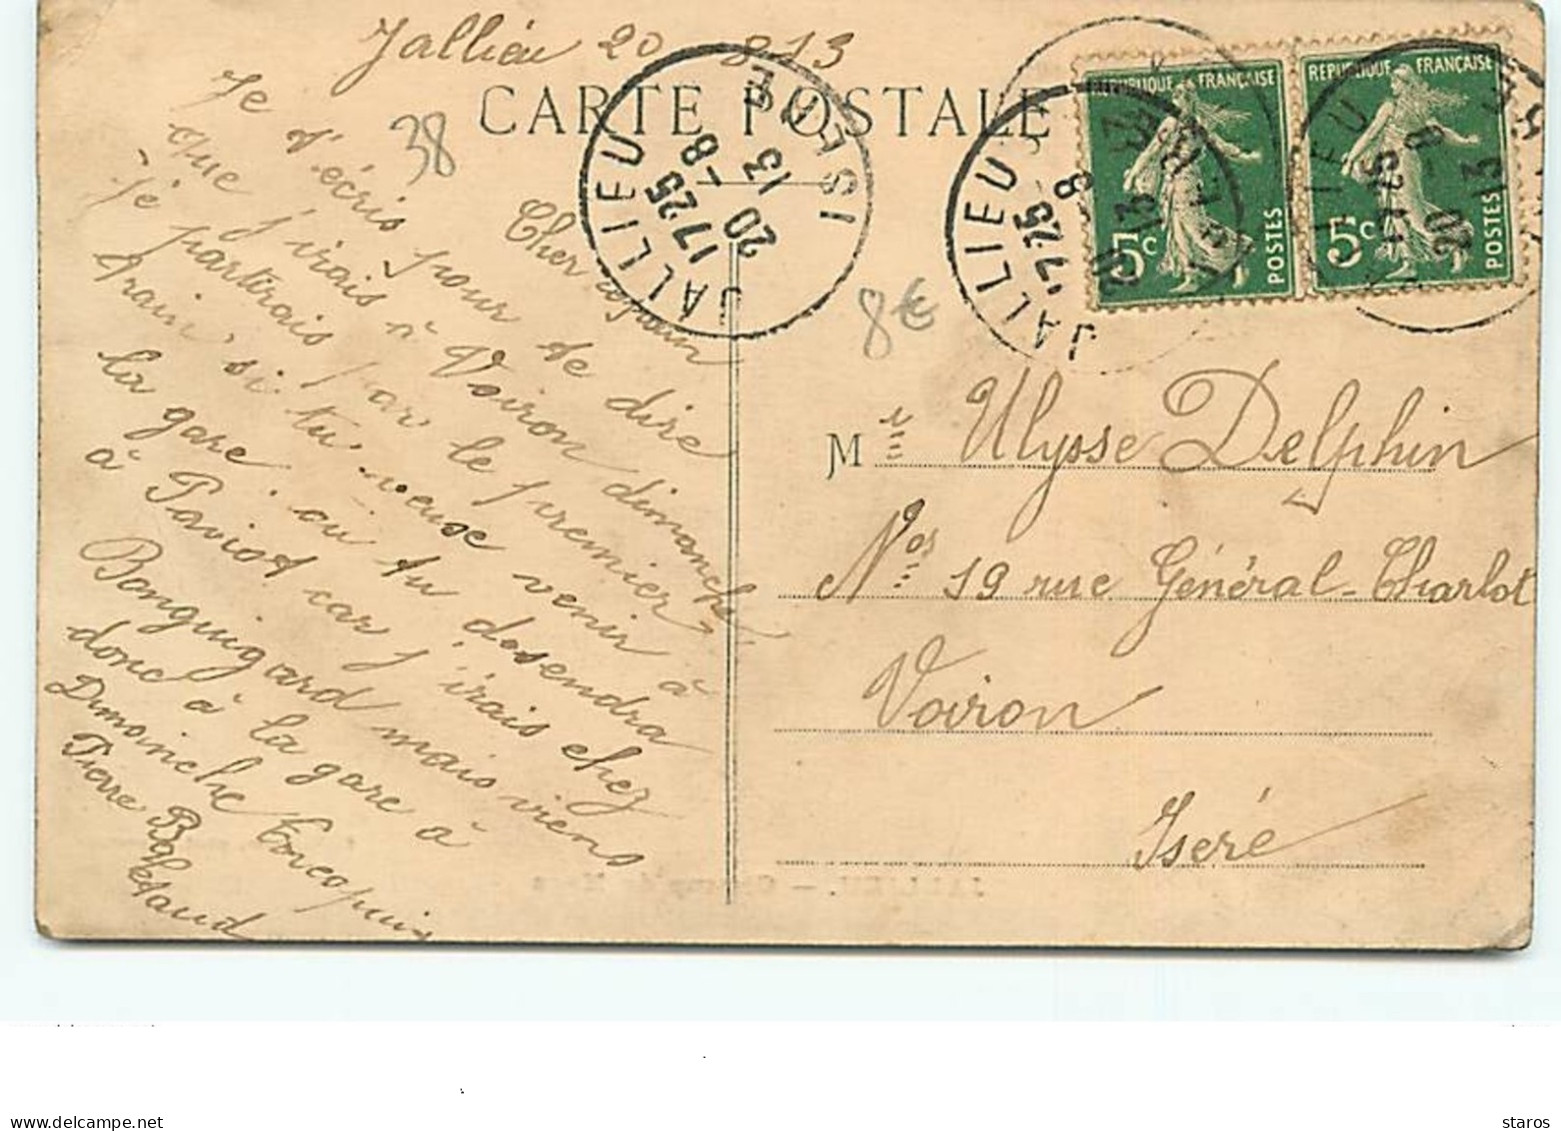 Jallieu 20 8 13
CARTE POSTALE
38
8€
Cher copain
Je t'écris pour te dire
que j'irais à Voiron dimanche
Je partirais par le premier
train si tu veuse venir à
la gare où tu desendra
à Paviot car j'irais chez
Bonguignard mais viens
donc à la gare à
Dimanche ton copain
Pierre
JALLIEU ISERE
17 25
20 - 8
13
JALLIEU
17 25
20 - 8
13
RÉPUBLIQUE FRANÇAISE
5c
POSTES
RÉPUBLIQUE FRANÇAISE
5c
POSTES
17 25
20 - 8
13
Mr Ulysse Delphin
Nos 19 rue Général-Charlot
Voiron
Iseré
JALLIEU. —
staros
delcampe.net